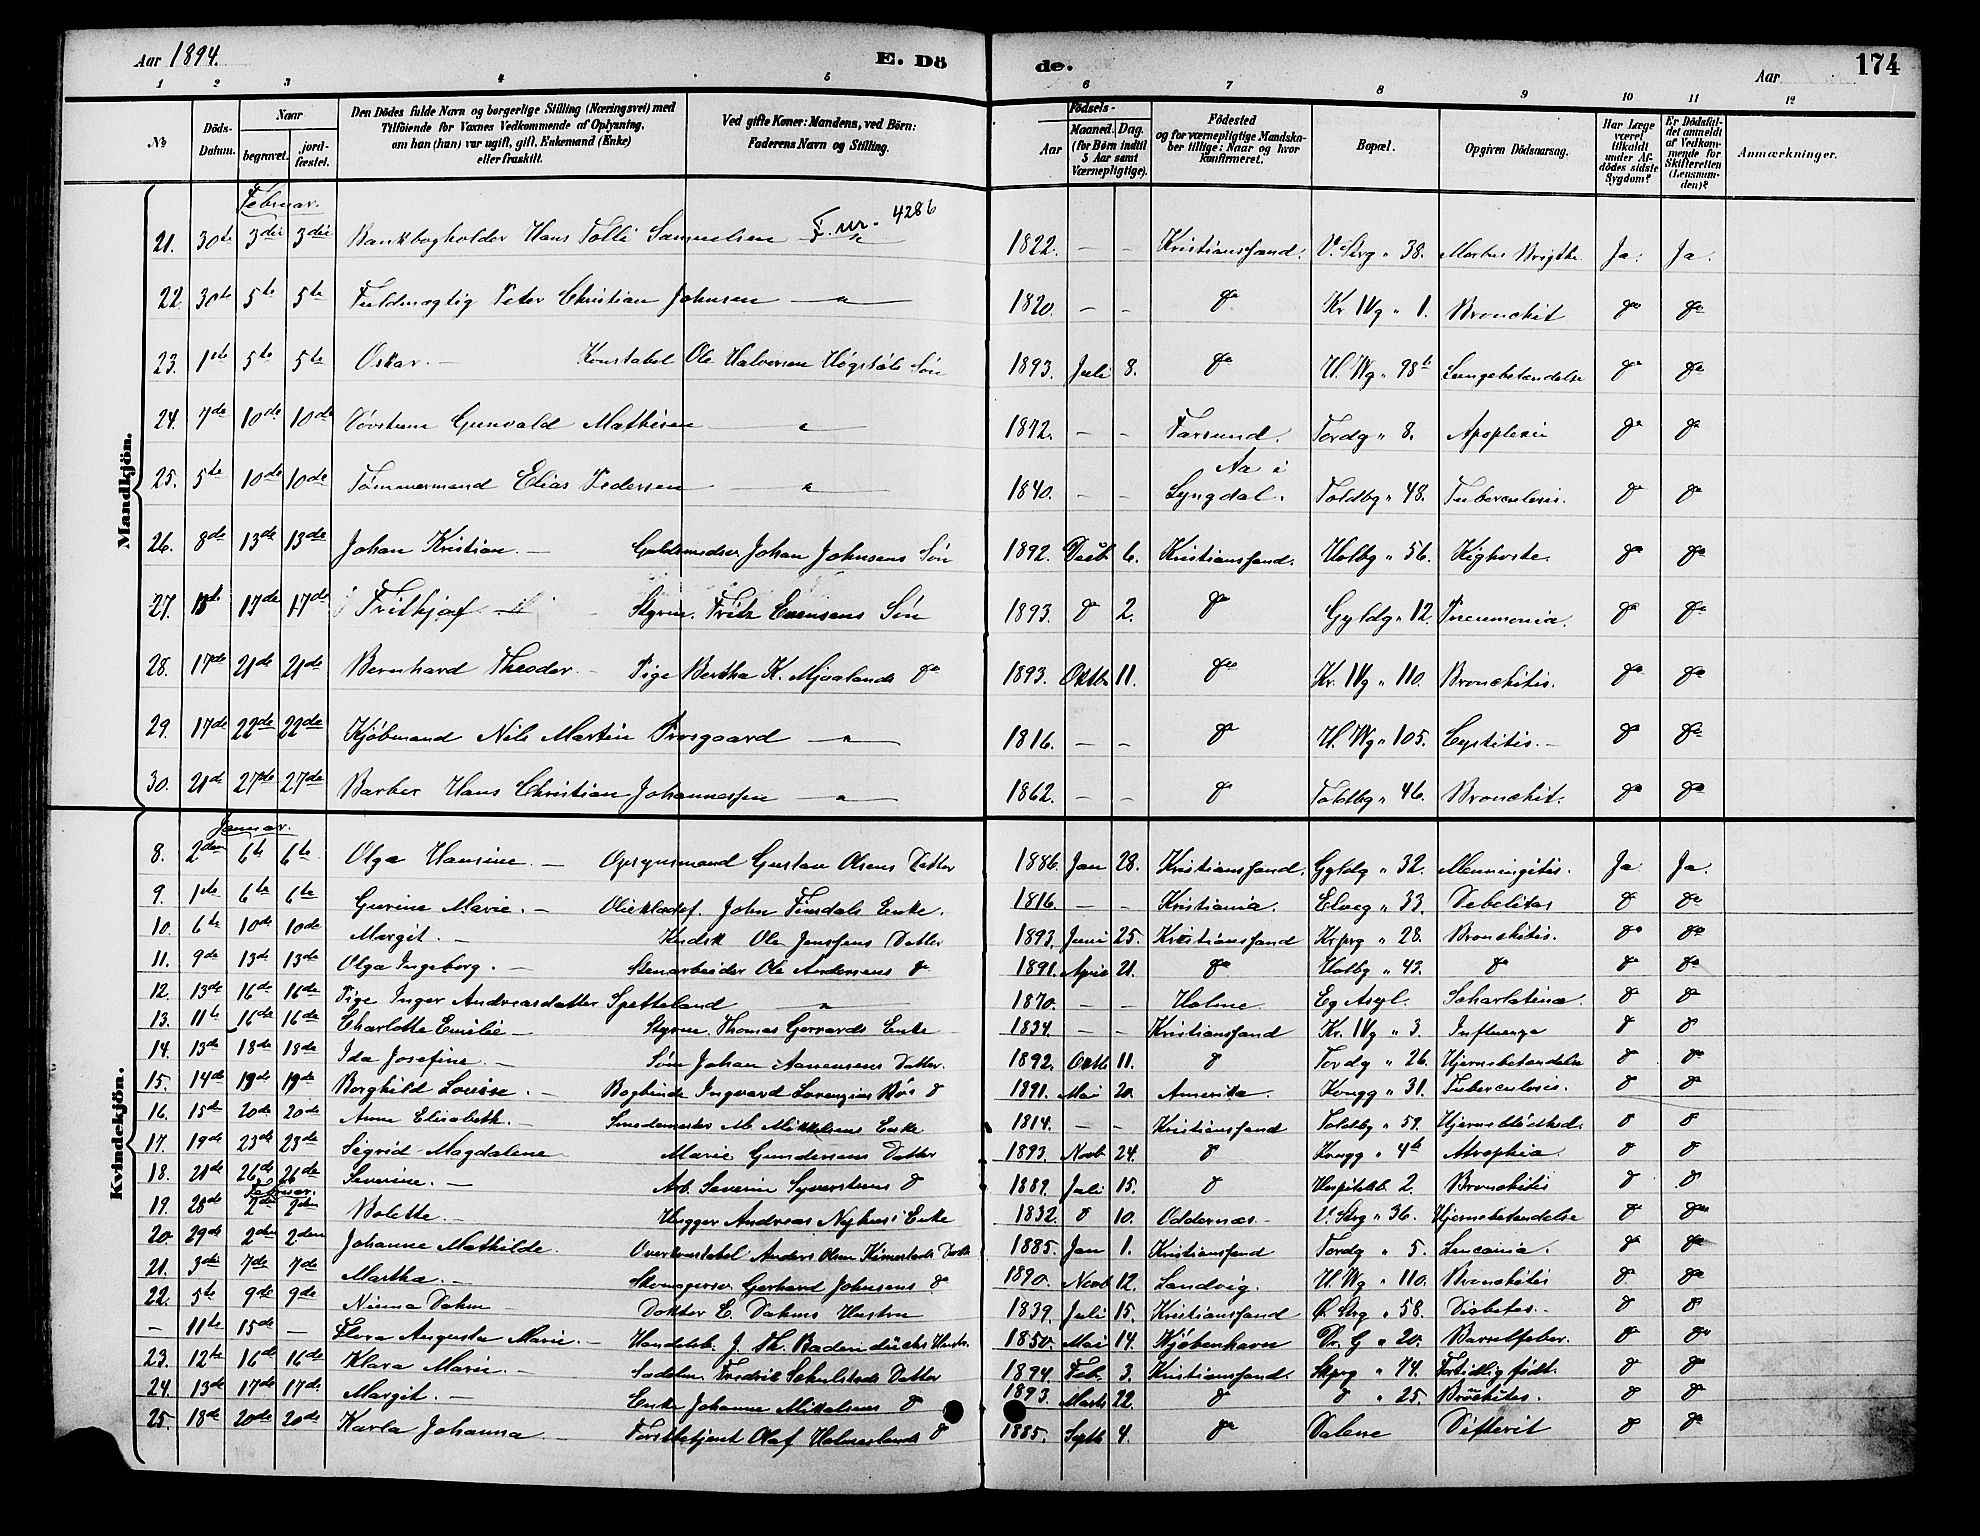 Aar 1894. E. Dö de. Aar 174
1 2 3 4 5 6 7 8 9 10 11 12
№ Döds-Datum. Naar begravet. jordfæstet. Den Dödes fulde Navn og borgerlige Stilling (Næringsvei) med Tilföiende for Voxnes Vedkommende af Oplysning, om han (hun) var ugift, gift, Enkemand (Enke) eller fraskilt. Ved gifte Koner: Mandens, ved Börn: Faderens Navn og Stilling. Födsels- Aar Maaned. Dag. (for Børn indtil 5 Aar samt Værnepligtige). Födested og for værnepligtige Mandskaber tillige: Naar og hvor konfirmeret. Bopæl. Opgiven Dödsaarsag. Har Læge været tilkaldt under Afdödes sidste Sygdom? Er Dödsfaldet anmeldt af Vedkommende for Skifteretten (Lensmanden)? Anmærkninger.
Mandkjön.
Februar.
21. 30te 3die 3die Bankbogholder Hans Tolli Samuelsen F. nr. 4286 1822. – – Kristianssand. V. Strg " 38. Morbus Brigthi Ja. Ja.
22. 30te 5te 5te Fuldmægtig Peter Christian Johnsen — " — 1820. – – do Kr. IVg " 1. Bronchit do do
23. 1ste 5te 5te Oskar. – Konstabel Ole Halvorsen Høgstøls Søn 1893. Juli 8. do H. Wg " 98b Lungebetændelse do do
24. 7de 10de 10de Gunvald Mathisen — " — 1872. – – Farsund. Tordg " 8. Apoplexie do do
25. 5te 10de 10de Tømmermand Elias Pedersen — " — 1840. – – Aa i Lyngdal. Toldbg " 48. Tuberculosis. do do
26. 8de 13de 13de Johan Kristian. – Guldsmedsv. Johan Johnsens Søn 1892. Decb 6. Kristianssand. Holbg " 56. Kighoste. do do
27. 13de 17de 17de Frithjof. – Styrm. Fritz Evensens Søn 1893. do 2. do Gyldg " 12. Pneumonia. do do
28. 17de 21de 21de Bernhard Theodor – Pige Bertha K. Mjaalands do 1893. Oktbr 11. do Kr. IVg " 110. Bronchitis. do do
29. 17de 22de 22de Kjøbmand Nils Martin Prosgaard — " — 1816. – – do H. Wg " 105. Cystitis. – do do
30. 21de 27de 27de Barber Hans Christian Johannessen — " — 1862. – – do Toldbg " 46. Bronchit. do do
Kvindekjön.
Januar.
8. 2den 6te 6te Olga Hansine. – Opsynsmand Gustav Olsens Datter 1886. Jan 28. Kristianssand. Gyldg " 32. Menningitis. Ja Ja.
9. 1ste 6te 6te Gurine Marie. – John Tinsdals Enke. 1816. – – Kristiania. Elveg " 33. Debelitas do do
10. 6te 10de 10de Margit. – Kudsk Ole Jenssens Datter 1893. Juni 25. Kristianssand Krprg " 28. Bronchitis. do do
11. 9de 13de 13de Olga Ingeborg. – Stenarbeider Ole Andersens do 1891. April 21. do Holbg " 43. do do do
12. 13de 16de 16de Pige Inger Andreasdatter Spetteland — " — 1870. – – Holme. Eg Asyl. Scharlatina do do
13. 11te 16de 16de Charlotte Emilie – Styrm. Thomas Gervards Enke 1834. – – Kristianssand Kr. IVg " 3. Influenza do do
14. 13de 18de 18de Ida Josefine. – Søm Johan Aanensens Datter. 1892. Oktb 11. do Tordg " 26. Hjernebetændelse do do
15. 14de 19de 19de Borghild Lovise. – Bogbinder Ingvard Lorenzius Bøs do 1891. Mai 20. Amerika. Kongg " 31. Tuberculosis. do do
16. 15de 20de 20de Anne Elisabeth. – Smedemester M. Mikkelsens Enke 1814. – – Kristianssand Toldbg " 59. Hjerneblödhed. do do
17. 19de 23de 23de Sigrid Magdalene Marie Gundersens Datter 1893. Novb 24. do Kongg " 4b Atrophia. do do
18. 21de 26de 26de Severine. – Arb. Severin Syvertsens do 1889. Juli 15. do Hospitalsb. 2. Bronchitis do do
Februar.
19. 28de 2den 2den Bolette. – Andreas Nyhus' Enke 1832. do 10. Oddernæs – V. Strg " 36. Hjernebetændelse do do
20. 29de 2den 2den Johanne Mathilde. Overkonstabel Anders Olsen Datter 1885. Jan 1. Kristianssand Tordg " 5. do do
21. 3die 7de 7de Martha. – Gerhard Johnsens do 1890. Novb 12. Landvig. H. Wg " 110. Bronchitis do do
22. 5te 9de 9de Ninna Dahm – Doktor C. Dahms Hustru 1839. Juli 15. Kristianssand Ø. Strg " 58. Diabetes. – do do
– 11te 15de – Flora Augusta Marie. – Handelsb. J. Th. Badendücks Hustru 1850. Mai 14. Kjøbenhavn Dr. G " 20. Barselfeber. do do
23. 12te 16de 16de Klara Marie. – Sadelm. Fredrik Schulstads Datter 1894. Feb. 3. Kristianssand. Skprg " 74. Fortidlig født. do do
24. 13de 17de 17de Margit. – Enke Johanne Mikalsens do 1893. Marts 22. do do " 25. Bronchites. do do
25. 18de 20de 20de Karla Johanna Forstbetjent Olaf Holmeslands do 1885. Septb 4. do Dalene Difterit do do